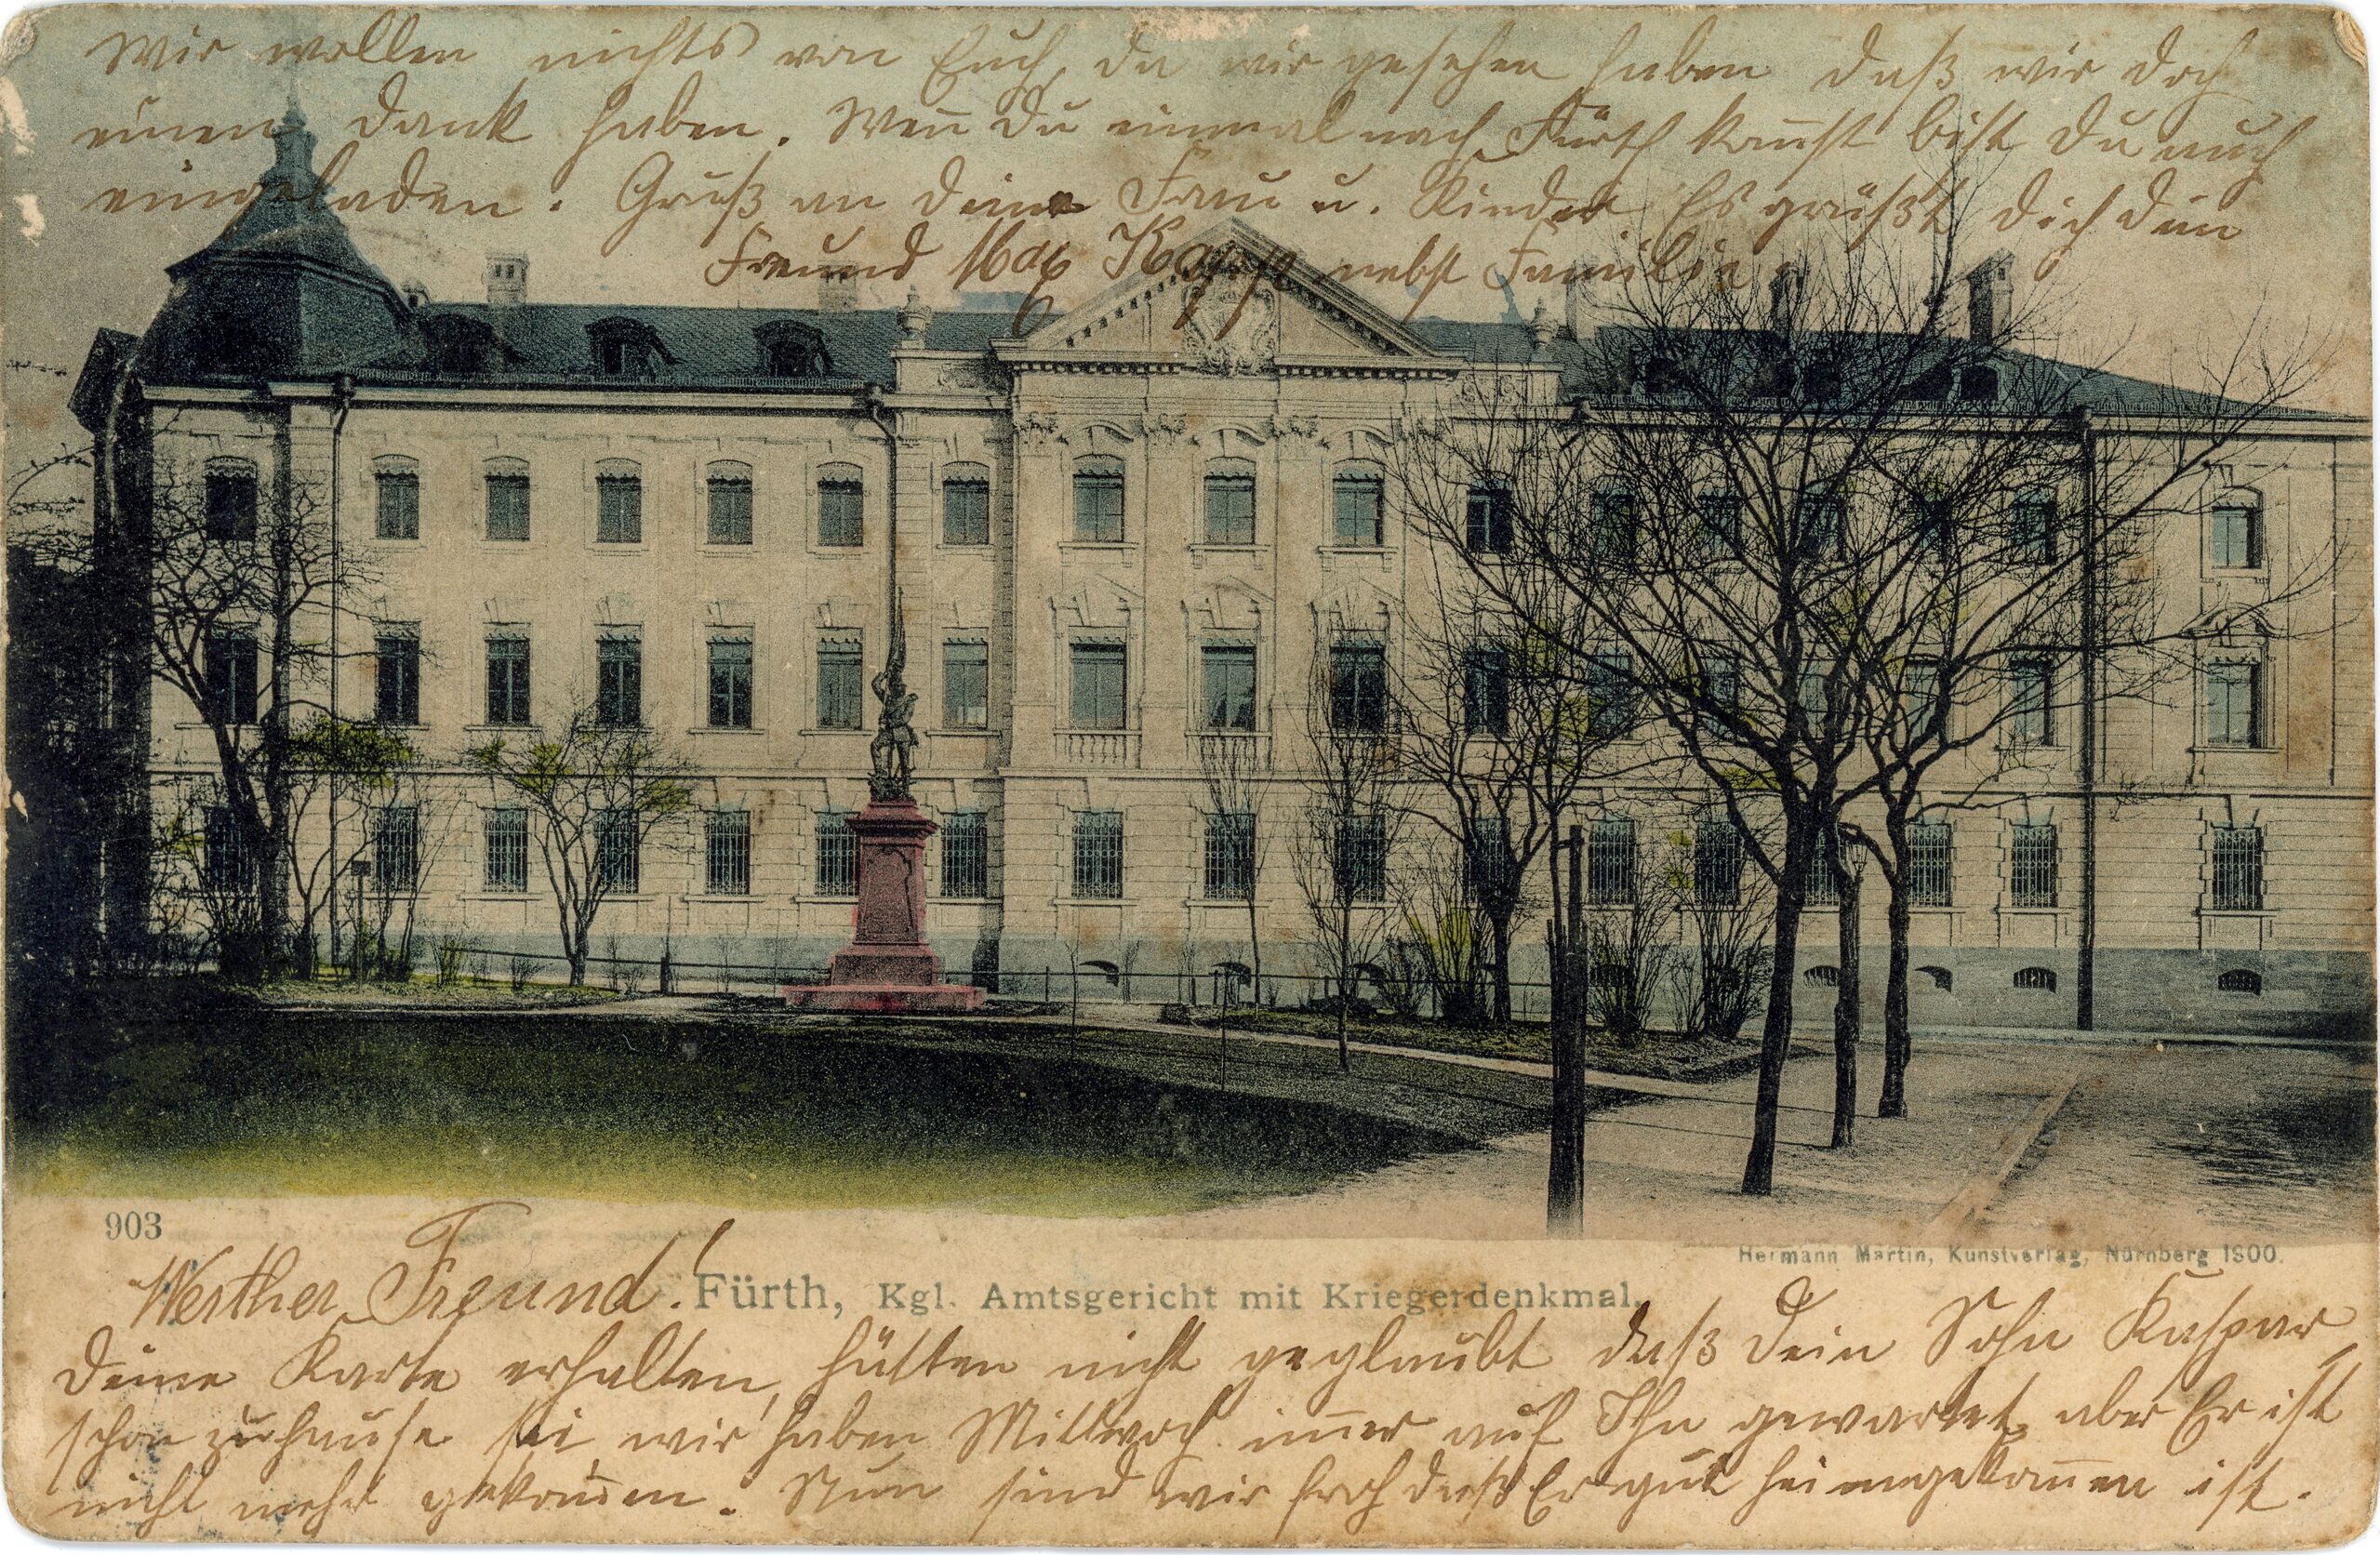 Wir wollen nichts von Euch, da wir gesehen haben daß wir doch
einen Dank haben. Weñ Du einmal nach Fürth kom̄st bist Du auch
eingeladen. Gruß an deine Frau u. Kinder Es grüßt Dich dein
Freund Max Kapp nebst Familie
903
Hermann Martin, Kunstverlag, Nürnberg 1900.
Werther Freund!
Fürth, Kgl. Amtsgericht mit Kriegerdenkmal.
Deine Karte erhalten, hätten nicht geglaubt daß Dein Sohn Kaspar,
schon zuhause sei wir haben Mittwoch im̄er auf Ihn gewartet, aber Er ist
nicht mehr gekom̄en. Nun sind wir froh daß Er gut heimgekom̄en ist.